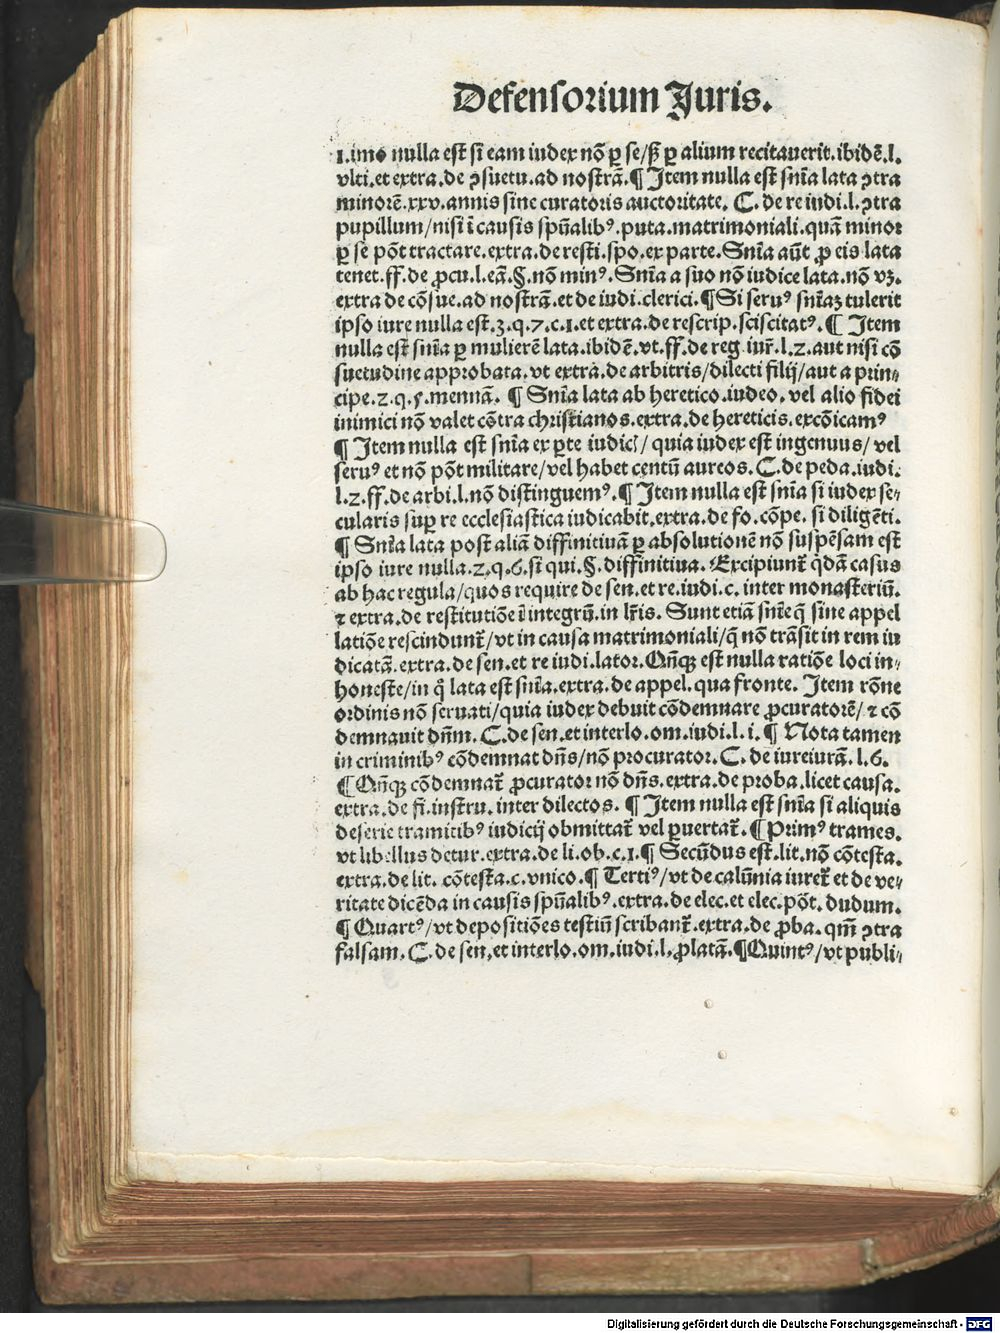 Defensorium Juris.
1. imo nulla est si eam iudex nō ꝑ se/sꝫ ꝑ alium recitauerit. ibidē. l.
vlti. et extra. de ꝯsuetu. ad nostrā. ¶ Item nulla est snīa lata ꝯtra
minorē. xxv. annis sine curatoris auctoritate. C. de re iudi. l. ꝯtra
pupillum/nisi ī causis spūalibꝰ. puta. matrimoniali. quā minor
ꝑ se pōt tractare. extra. de resti. spo. ex parte. Snīa aūt ꝓ eis lata
tenet. ff. de ꝓcu. l. eā. §. nō minꝰ. Snīa a suo nō iudice lata. nō vꝫ.
extra de cōsue. ad nostrā. et de iudi. clerici. ¶ Si seruꝰ snīaꝫ tulerit
ipso iure nulla est. 3. q. 7. c. 1. et extra. de rescrip. sciscitatꝰ. ¶ Item
nulla est snīa ꝑ mulierē lata. ibidē. vt. ff. de reg. iur̄. l. 2. aut nisi cō
suetudine approbata. vt extra. de arbitris/dilecti filij/aut a prin⸗
cipe. 2. q. 5. mennā. ¶ Snīa lata ab heretico. iudeo. vel alio fidei
inimici nō valet cōtra christianos. extra. de hereticis. excōicamꝰ
¶ Item nulla est snīa ex ꝑte iudic̄/ quia iudex est ingenuus/ vel
seruꝰ et nō pōt militare/vel habet centū aureos. C. de peda. iudi.
l. 2. ff. de arbi. l. nō distinguemꝰ. ¶ Item nulla est snīa si iudex se⸗
cularis suꝑ re ecclesiastica iudicabit. extra. de fo. cōpe. si diligēti.
¶ Snīa lata post aliā diffinitiuā ꝑ absolutionē nō suspēsam est
ipso iure nulla. 2. q. 6. si qui. §. diffinitiua. Excipiunt̄ q̄dā casus
ab hac regula/quos require de sen. et re. iudi. c. inter monasteriū.
⁊ extra. de restitutiōe ī integrū. in lr̄is. Sunt etiā snīe q̄ sine appel
latiōe rescindunt̄/vt in causa matrimoniali/q̄ nō trāsit in rem iu
dicatā. extra. de sen. et re iudi. lator. Qn̄qꝫ est nulla ratiōe loci in⸗
honeste/in q̊ lata est snīa. extra. de appel. qua fronte. Item rōne
ordinis nō seruati/quia iudex debuit cōdemnare ꝓcuratorē/ ⁊ cō
demnauit dn̄m. C. de sen. et interlo. om. iudi. l. i. ¶ Nota tamen
in criminibꝰ cōdemnat dn̄s/nō procurator. C. de iureiurā. l. 6.
¶ Qn̄qꝫ cōdemnat̄ ꝓcurator nō dn̄s. extra. de proba. licet causa.
extra. de fi. instru. inter dilectos. ¶ Item nulla est snīa si aliquis
de serie tramitibꝰ iudicij obmittat̄ vel ꝑuertat̄. ¶ Primꝰ trames.
vt libellus detur. extra. de li. ob. c. 1. ¶ Secūdus est. lit. nō cōtesta.
extra. de lit. cōtesta. c. vnico. ¶ Tertiꝰ/vt de calūnia iuret̄ et de ve⸗
ritate dicēda in causis spūalibꝰ. extra. de elec. et elec. pōt. dudum.
¶ Quartꝰ/vt depositiōes testiū scribant̄. extra. de ꝓba. qm̄ ꝯtra
falsam. C. de sen. et interlo. om. iudi. l. ꝓlatā. ¶ Quintꝰ/vt publi⸗
Digitalisierung gefördert durch die Deutsche Forschungsgemeinschaft - DFG